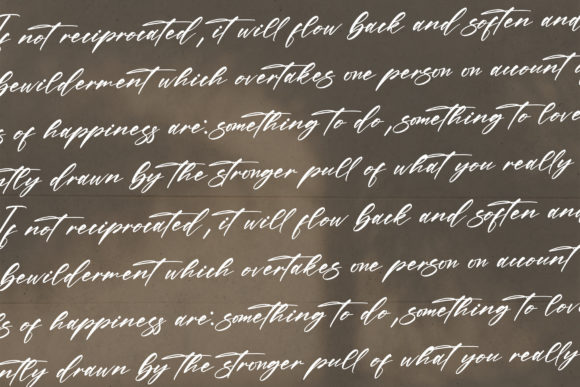 If not reciprocated, it will flow back and soften and
bewilderment which overtakes one person on account
s of happiness are: something to do, something to love
ntly drawn by the stronger pull of what you really
If not reciprocated, it will flow back and soften and
bewilderment which overtakes one person on account
s of happiness are: something to do, something to love
ntly drawn by the stronger pull of what you really